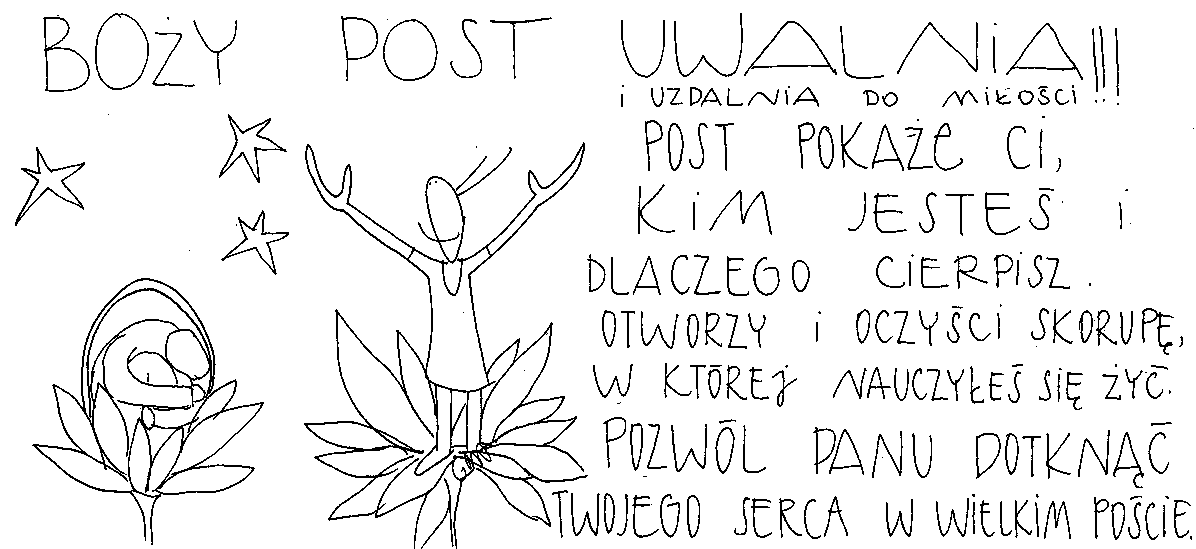 BOŻY POST UWALNIA!!!
i UZDALNIA DO MIŁOŚCI!!
POST POKAŻE CI,
KIM JESTEŚ i
DLACZEGO CIERPISZ.
OTWORZY i OCZYŚCI SKORUPĘ,
W KTÓREJ NAUCZYŁEŚ SIĘ ŻYĆ.
POZWÓL PANU DOTKNĄĆ
TWOJEGO SERCA W WIELKIM POŚCIE.